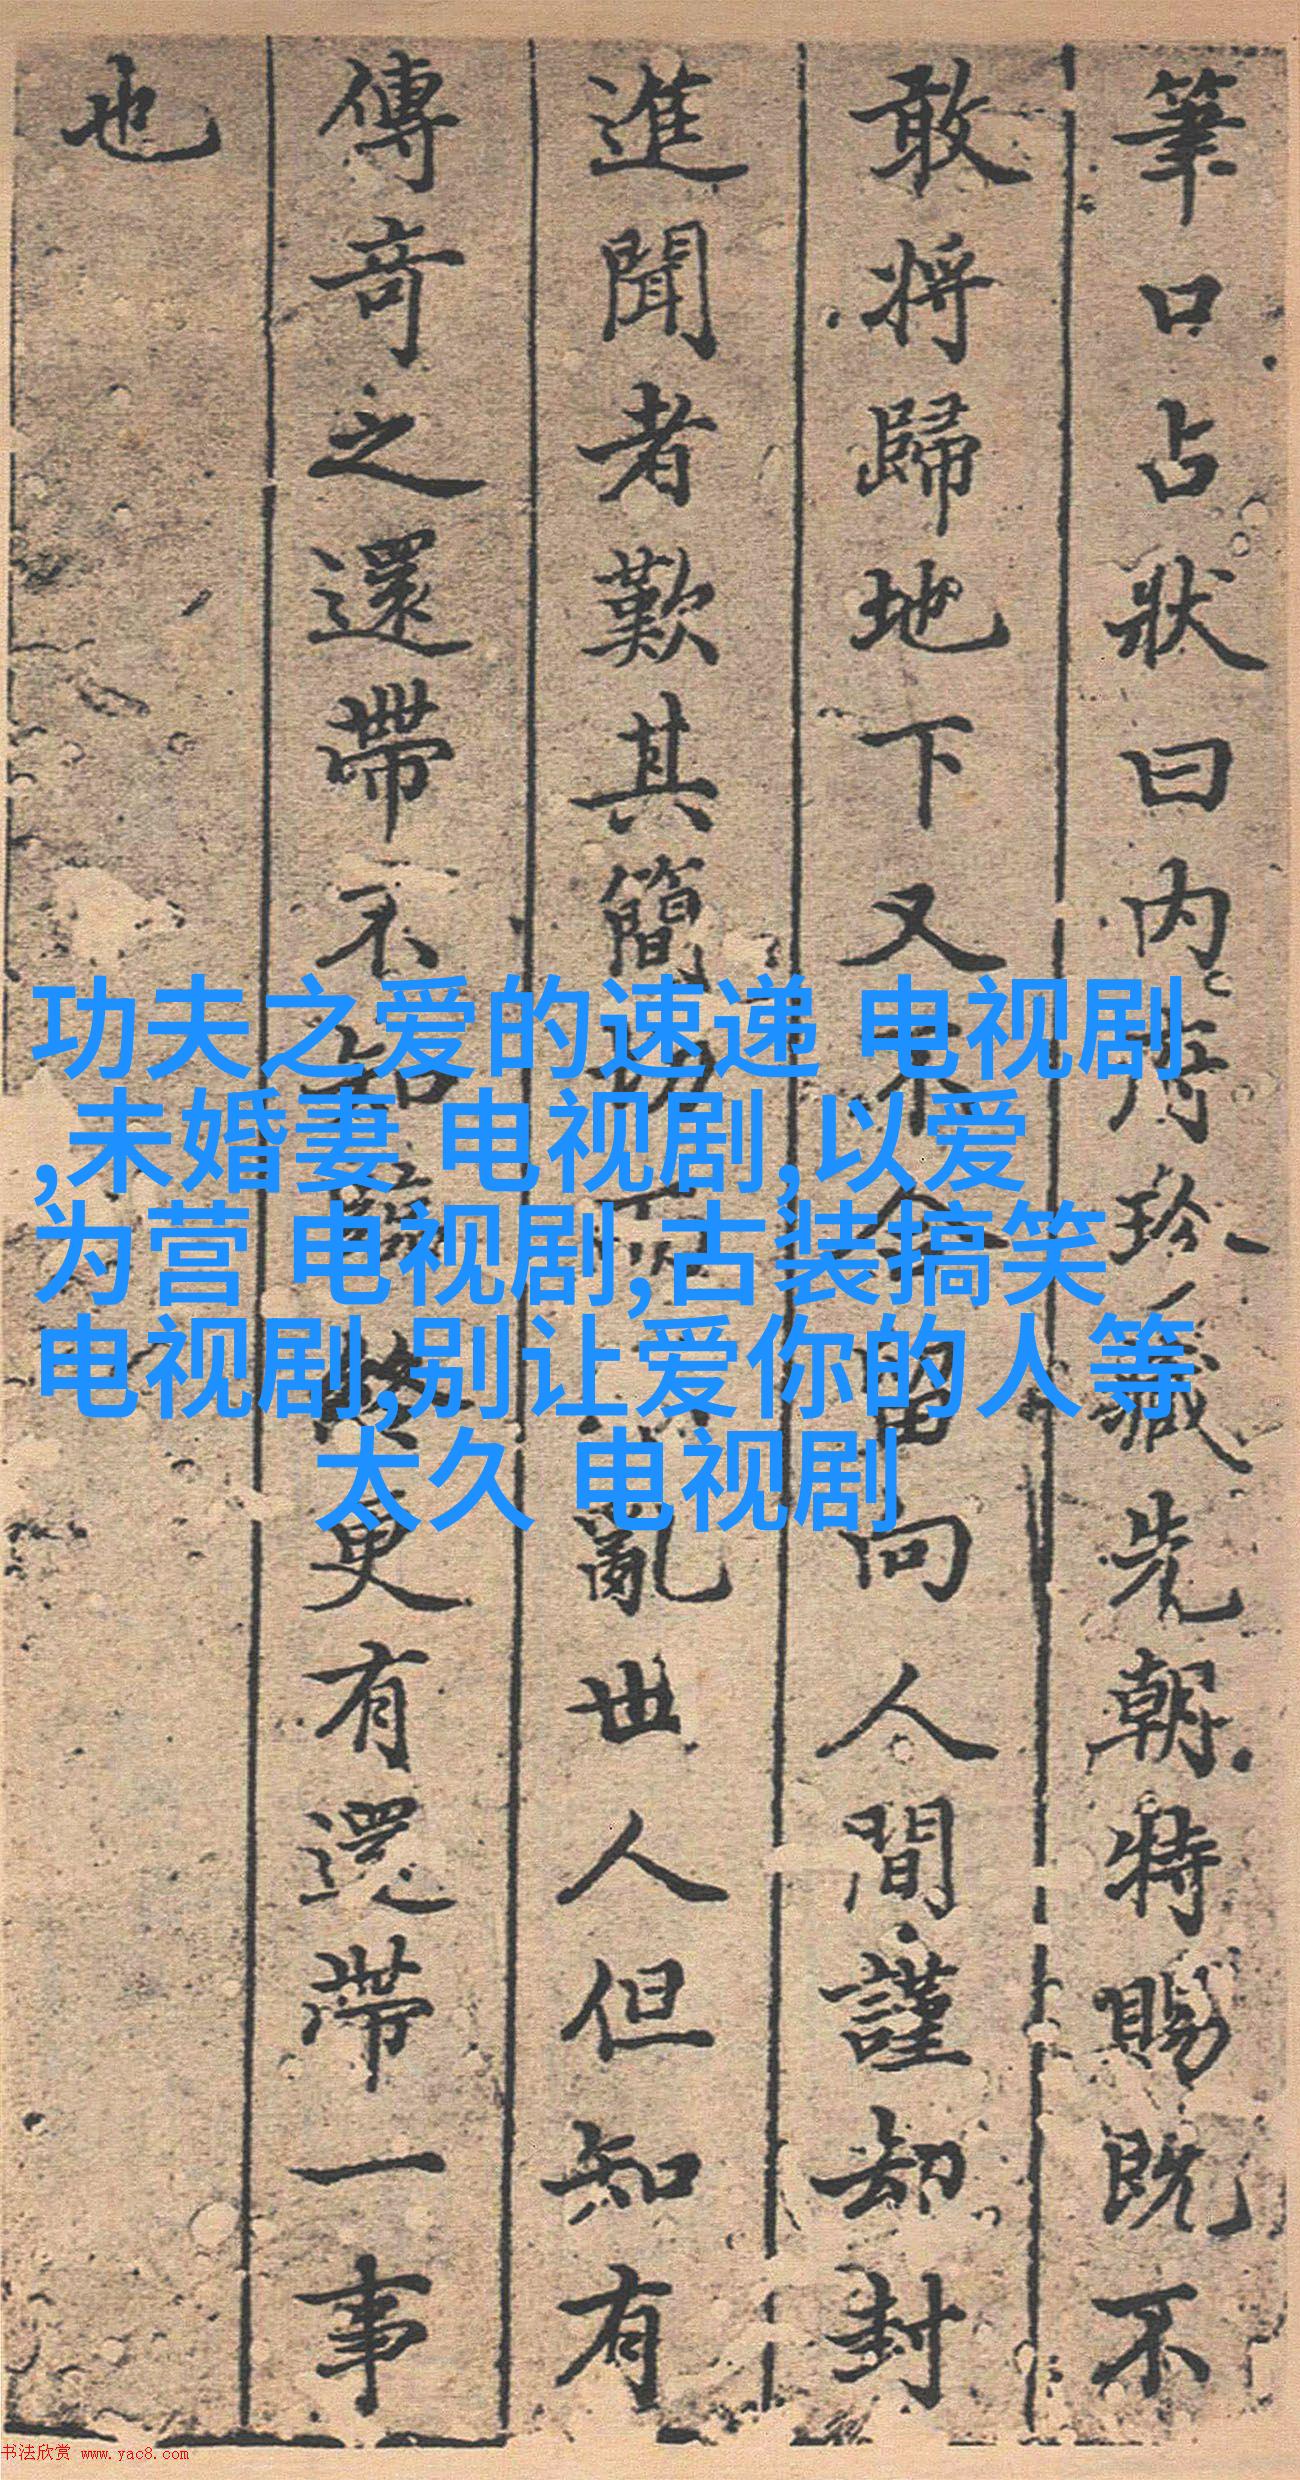 筆口占狀曰内府珍藏先朝特賜既不
敢將歸地下又不合留向人間謹却封
進聞者歎其簡切而亂世人但知有
傳奇之還帶不知更有還帶一事
也
功夫之爱的速递 电视剧
,未婚妻 电视剧,以爱
为营 电视剧,古装搞笑
电视剧,别让爱你的人等
太久 电视剧
书法欣赏 www.yac8.com